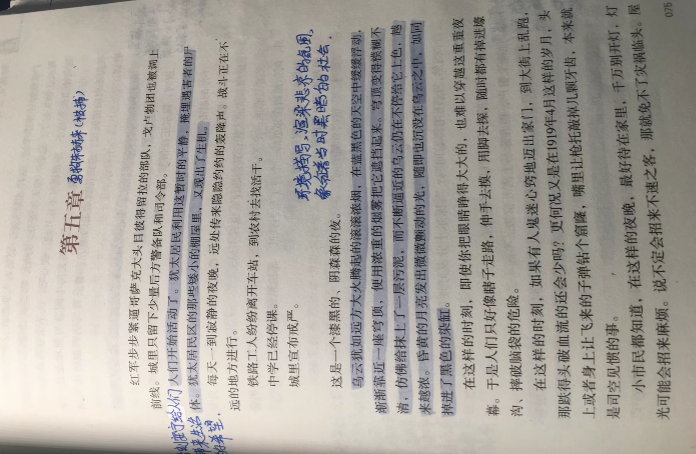 第五章
红军步步紧逼哥萨克大头目彼得留拉的部队、戈卢勃团也被调上
前线。城里只留下少量后方警备队和司令部。
人们开始活动了。犹太居民利用这暂时的平静，掩埋遇害者的尸
体。犹太居民区的那些矮小的棚屋里，又现出了生机。
每天一到寂静的夜晚，远处传来隐隐约约的轰隆声。战斗正在不
远的地方进行。
铁路工人纷纷离开车站，到农村去找活干。
中学已经停课。
城里宣布戒严。
环境描写，渲染悲哀的氛围，
象征着当时黑暗的社会。
这是一个漆黑的、阴森森的夜。
乌云犹如远方大火腾起的滚滚浓烟，在蓝黑色的天空中缓缓浮动，
渐渐靠近一座穹顶，便用浓重的烟雾把它遮挡起来。穹顶变得模糊不
清，仿佛给抹上了一层污泥，而不断逼近的乌云仍在不停给它上色，越
来越浓。昏黄的月亮发出微微颤动的光，随即也沉没在乌云之中，如同
掉进了黑色的染缸。
在这样的时刻，即使你把眼睛睁得大大的，也难以穿越这重重夜
幕。于是人们只好像瞎子走路，伸手去摸，用脚去探，随时都有掉进壕
沟、摔破脑袋的危险。
在这样的时刻，如果有人鬼迷心窍地迈出家门，到大街上乱跑，
那跌得头破血流的还会少吗？更何况又是在1919年4月这样的岁月，头
上或者身上让飞来的子弹钻个窟窿，嘴里让枪托敲掉几颗牙齿，本来就
是司空见惯的事。
小市民都知道，在这样的夜晚，最好待在家里，千万别开灯，灯
光可能会招来麻烦。说不定会招来不速之客，那就免不了灾祸临头。屋
075